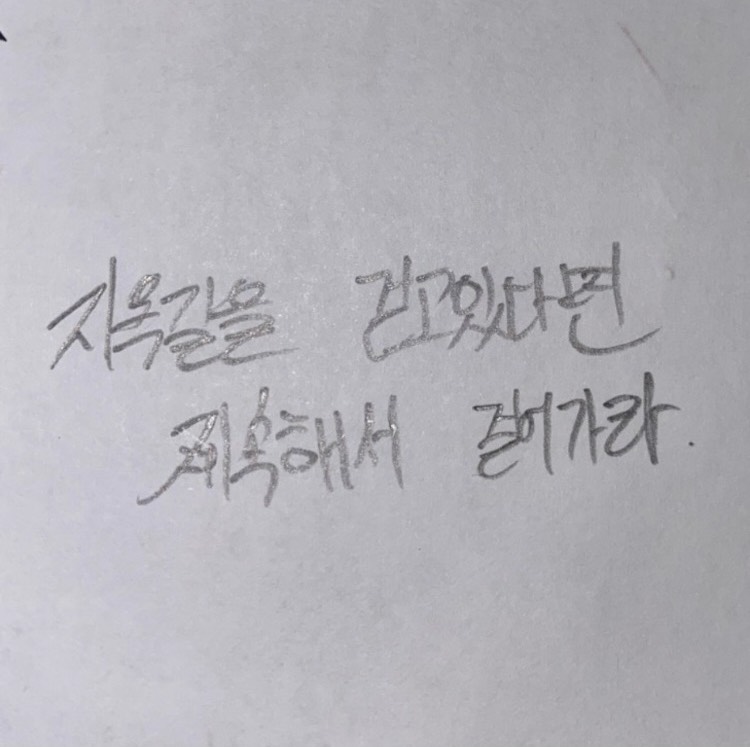 지옥길을 걷고있다면
계속해서 걸어가라.